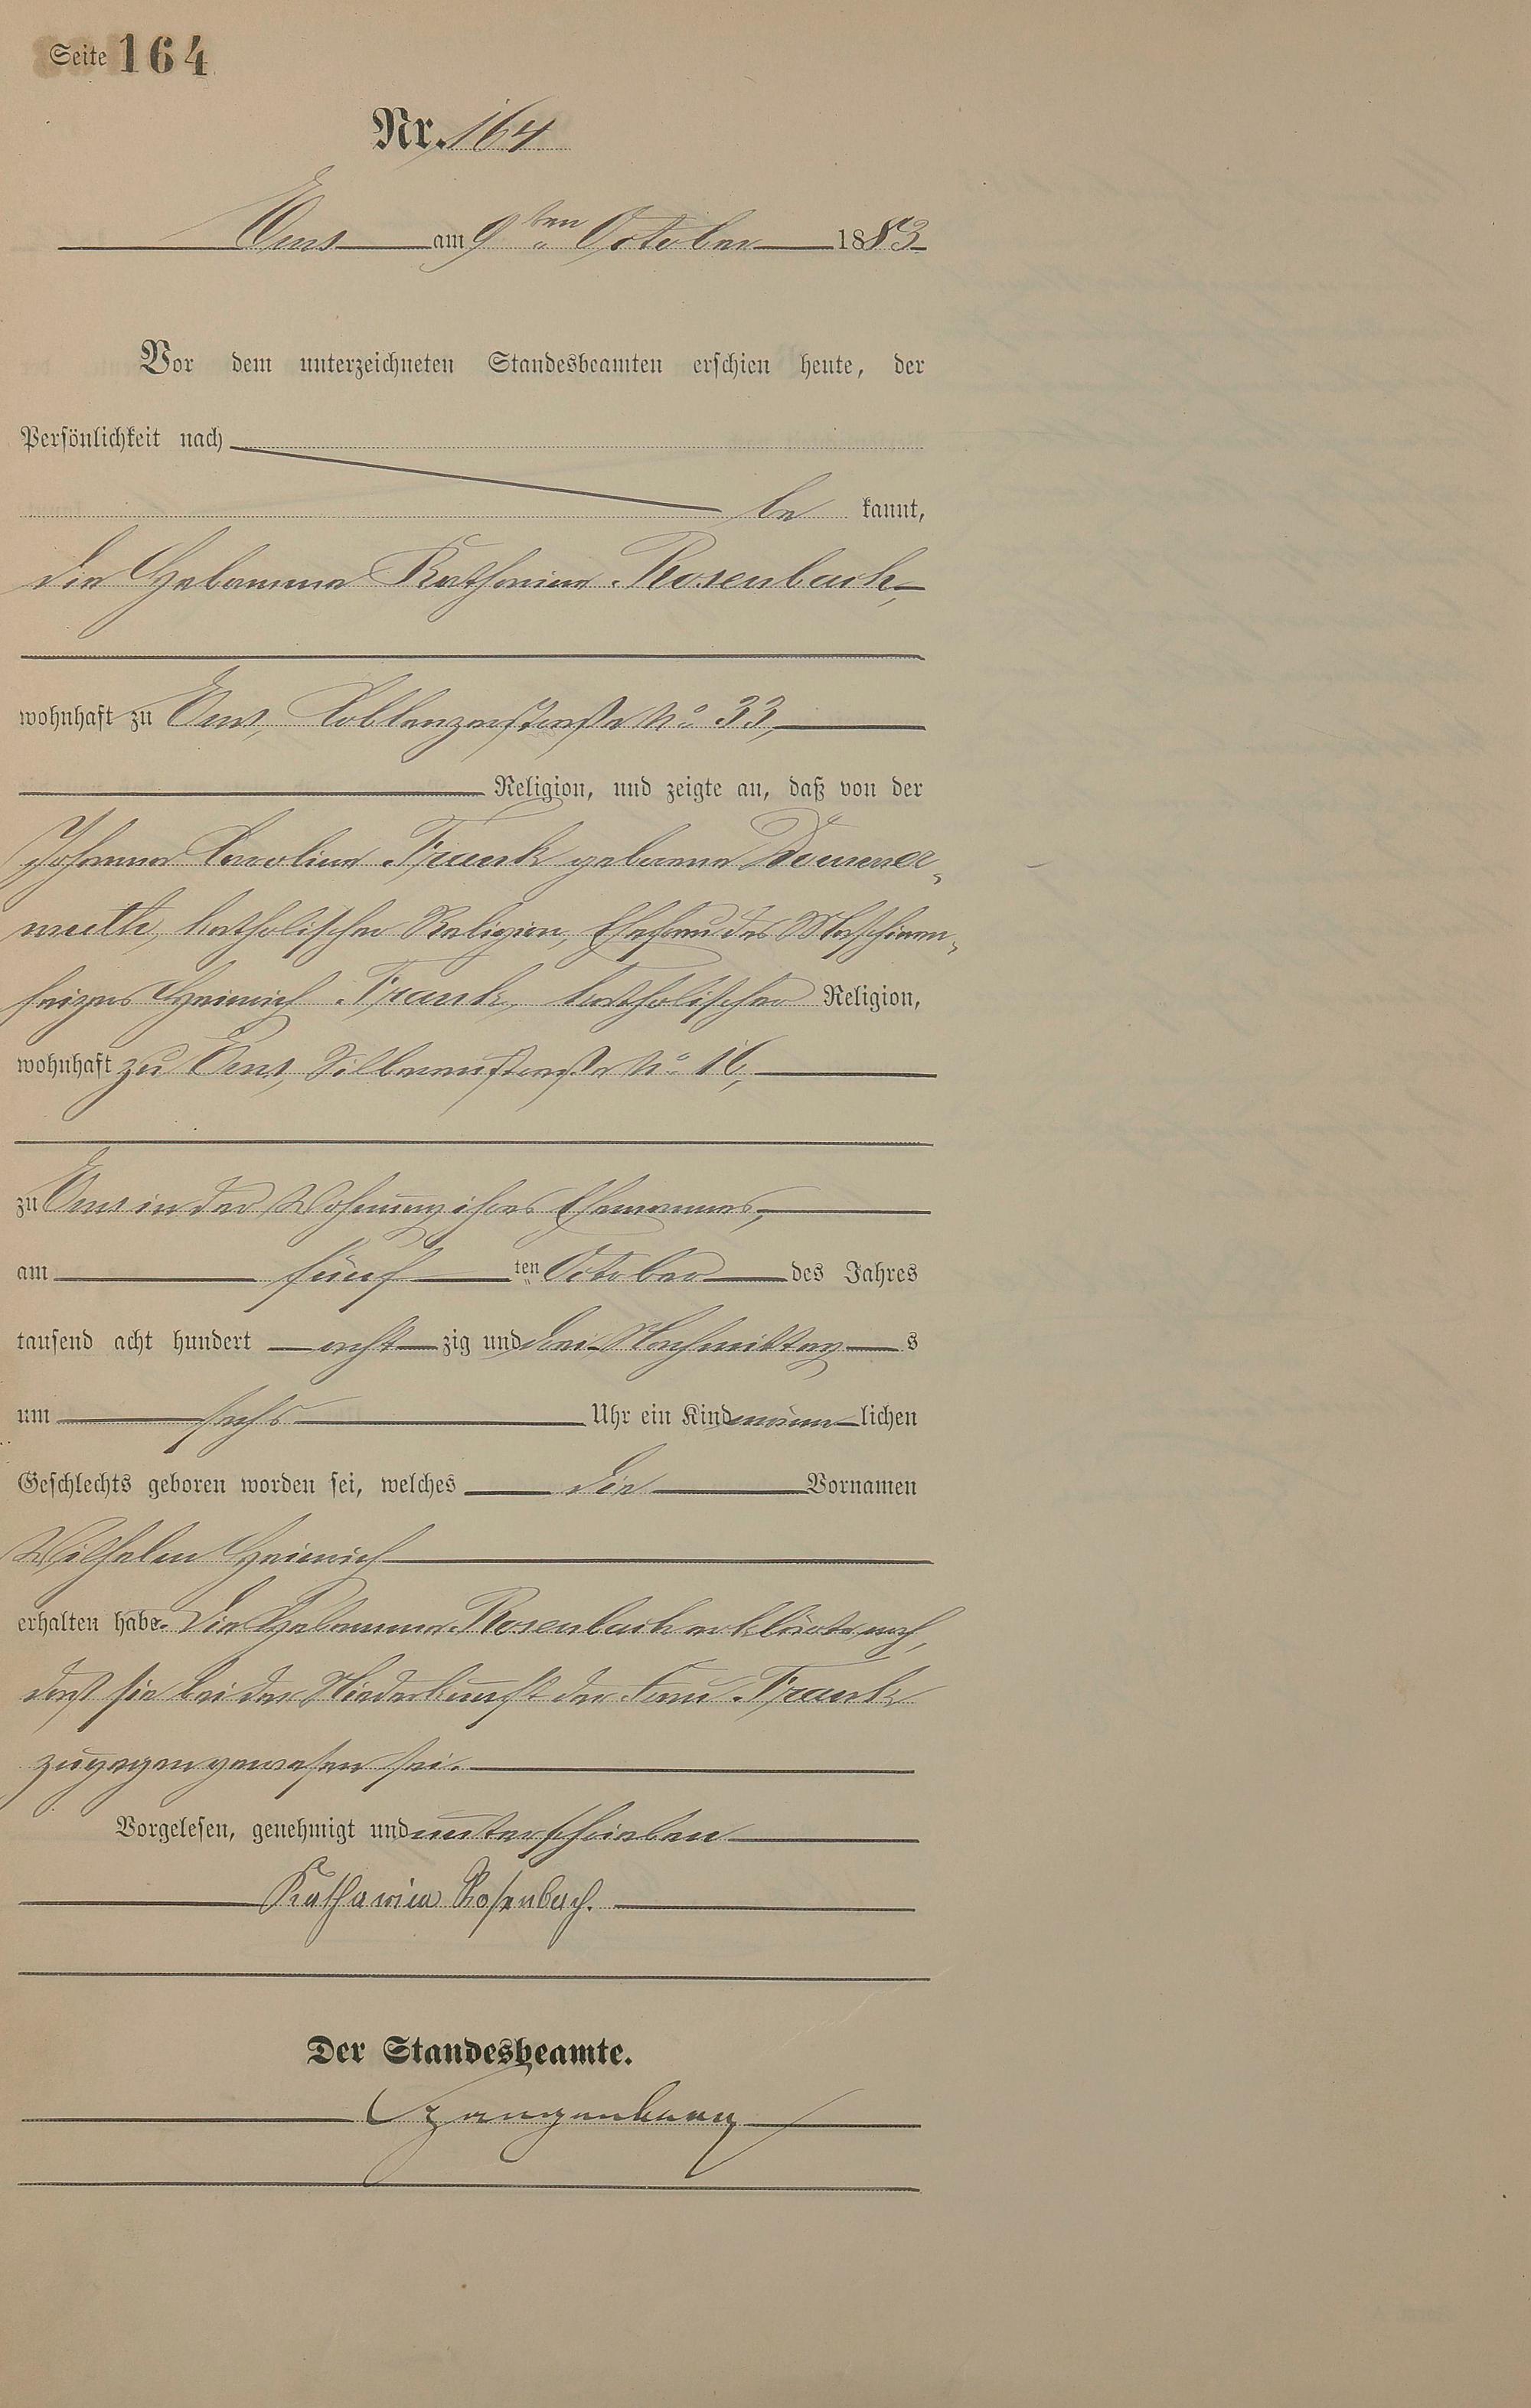 Seite 164
Nr. 164
Ems am 9ten October 1883
Vor dem unterzeichneten Standesbeamten erschien heute, der
Persönlichkeit nach
be kannt,
die Hebamme Katharina Rosenbach,
wohnhaft zu Ems, Coblenzerstraße No 33,
Religion, und zeigte an, daß von der
Johanna Carolina Frank geborene Dommer-
muth, katholischer Religion, Ehefrau des Maschinen-
heizers Heinrich Frank, katholischer Religion,
wohnhaft zu Ems, Silberaustraße No 16,
zu Ems in der Wohnung ihres Ehemannes,
am fünf ten October des Jahres
tausend acht hundert acht zig und drei Nachmittag s
um sechs Uhr ein Kind männ lichen
Geschlechts geboren worden sei, welches die Vornamen
Wilhelm Heinrich
erhalten habe. Die Hebamme Rosenbach erklärte noch,
daß sie bei der Niederkunft der Frau Frank
zugegen gewesen sei.
Vorgelesen, genehmigt und unterschrieben
Katharina Rosenbach.
Der Standesbeamte.